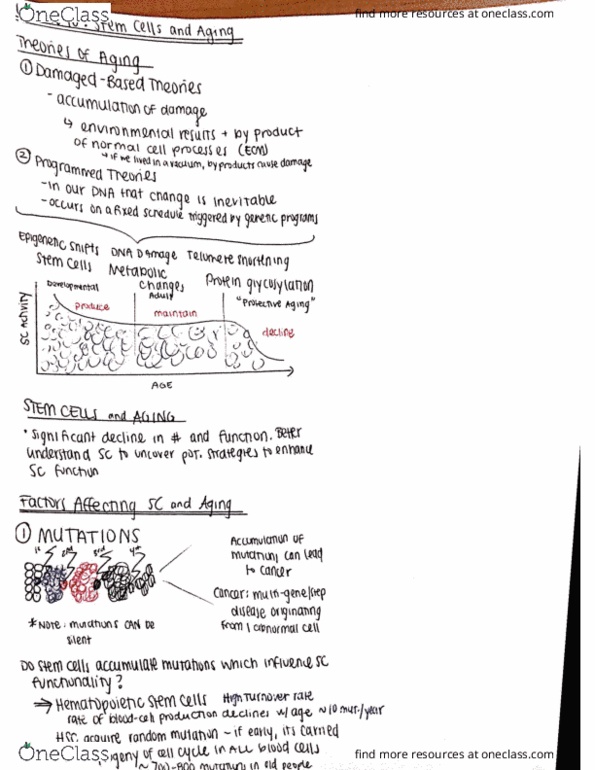 OneClass
find more resources at oneclass.com
Stem Cells and Aging
Theories of Aging
① Damaged-Based Theories
- accumulation of damage
↳ environmental results + by product
of normal cell processes (ECM)
↳ if we lived in a vacuum, by products cause damage
② Programmed Theories
- in our DNA that change is inevitable
- occurs on a fixed schedule triggered by genetic programs
Epigenetic shifts DNA Damage Telomere shortening
Stem Cells Metabolic Changes Protein glycosylation
Developmental Adult "Protective Aging"
produce maintain decline
SC Activity
AGE
STEM CELLS and AGING
• Significant decline in # and function. Better
understand SC to uncover pot. strategies to enhance
SC function
Factors Affecting SC and Aging
① MUTATIONS
1st 2nd 3rd 4th
Accumulation of
mutations can lead
to cancer
Cancer: multi-gene/step
disease originating
from 1 abnormal cell
*Note: mutations CAN be
silent
Do stem cells accumulate mutations which influence SC
functionality?
⇒ Hematopoietic Stem Cells High turnover rate
rate of blood-cell production declines w/age ~10 mut./year
HSC acquire random mutation ~ if early, its carried
of cell cycle in ALL blood cells
~ 700-800 mutations in old people
OneClass
find more resources at oneclass.com